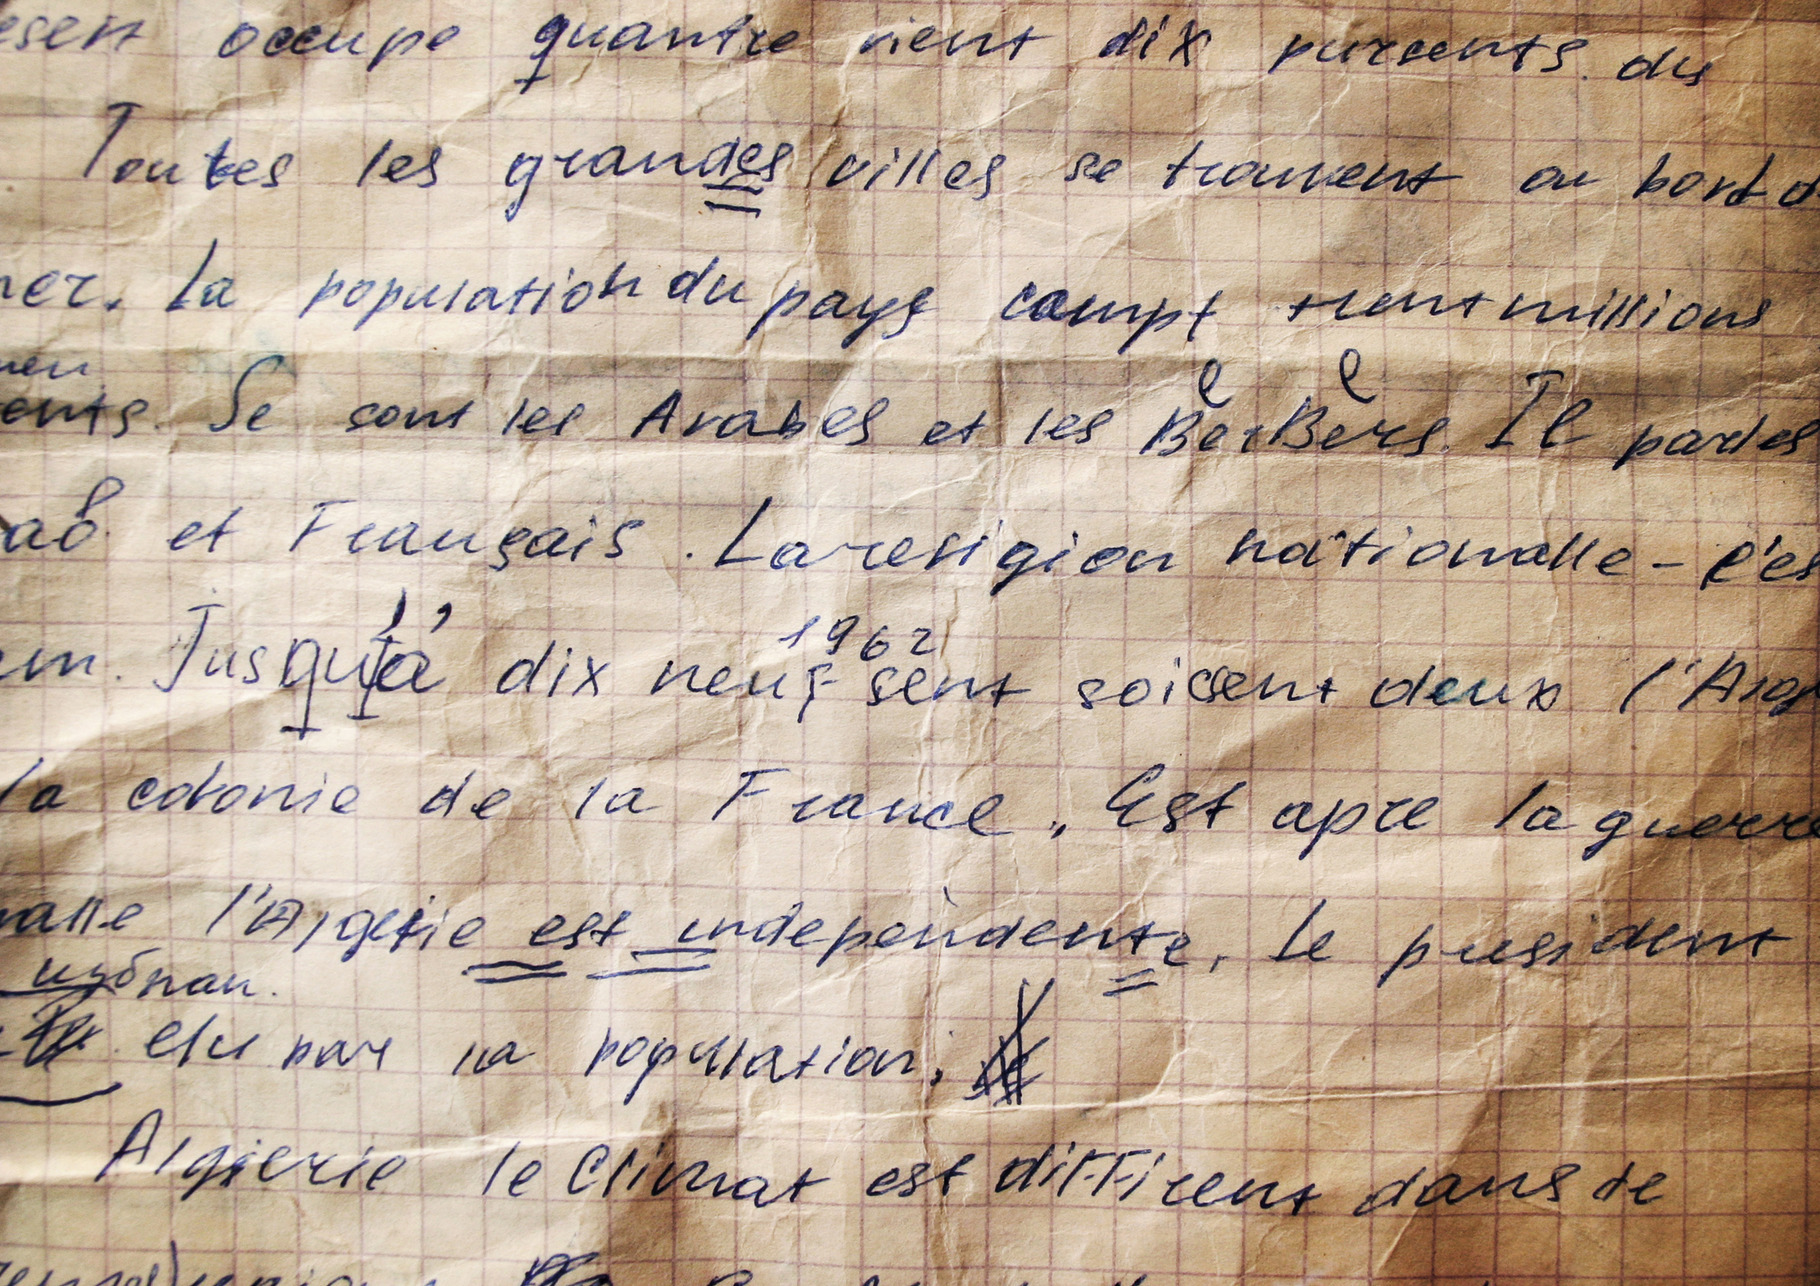 occupe quantre vient dix pursents. du
Toutes les grandes villes se trouvent au bord d
mer. La population du pays compt trent millions
Se sont les Arabes et les BerBers. Il parles
et Français. La religion nationalle - c'es
1962
Jusqu'à dix neuf sent soissent deux l'Alg
la colonie de la France. Est apre la guerre
nalle l'Algerie est independente. Le president
избран.
elu par la population.
Algierie le Climat est different dans le